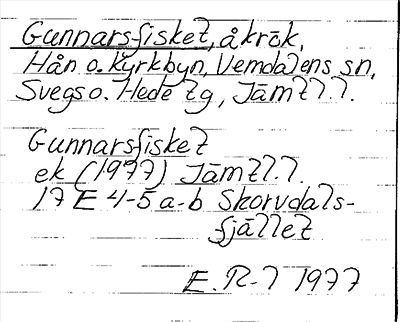 Gunnarsfisket, åkrök,
Hån o. Kyrkbyn, Vemdalens sn,
Svegs o. Hede tg, Jämtl.l.
Gunnarsfisket
ek (1977) Jämtl.l.
17 E 4-5 a-b Skorvdals-
fjället
E. R-l 1977